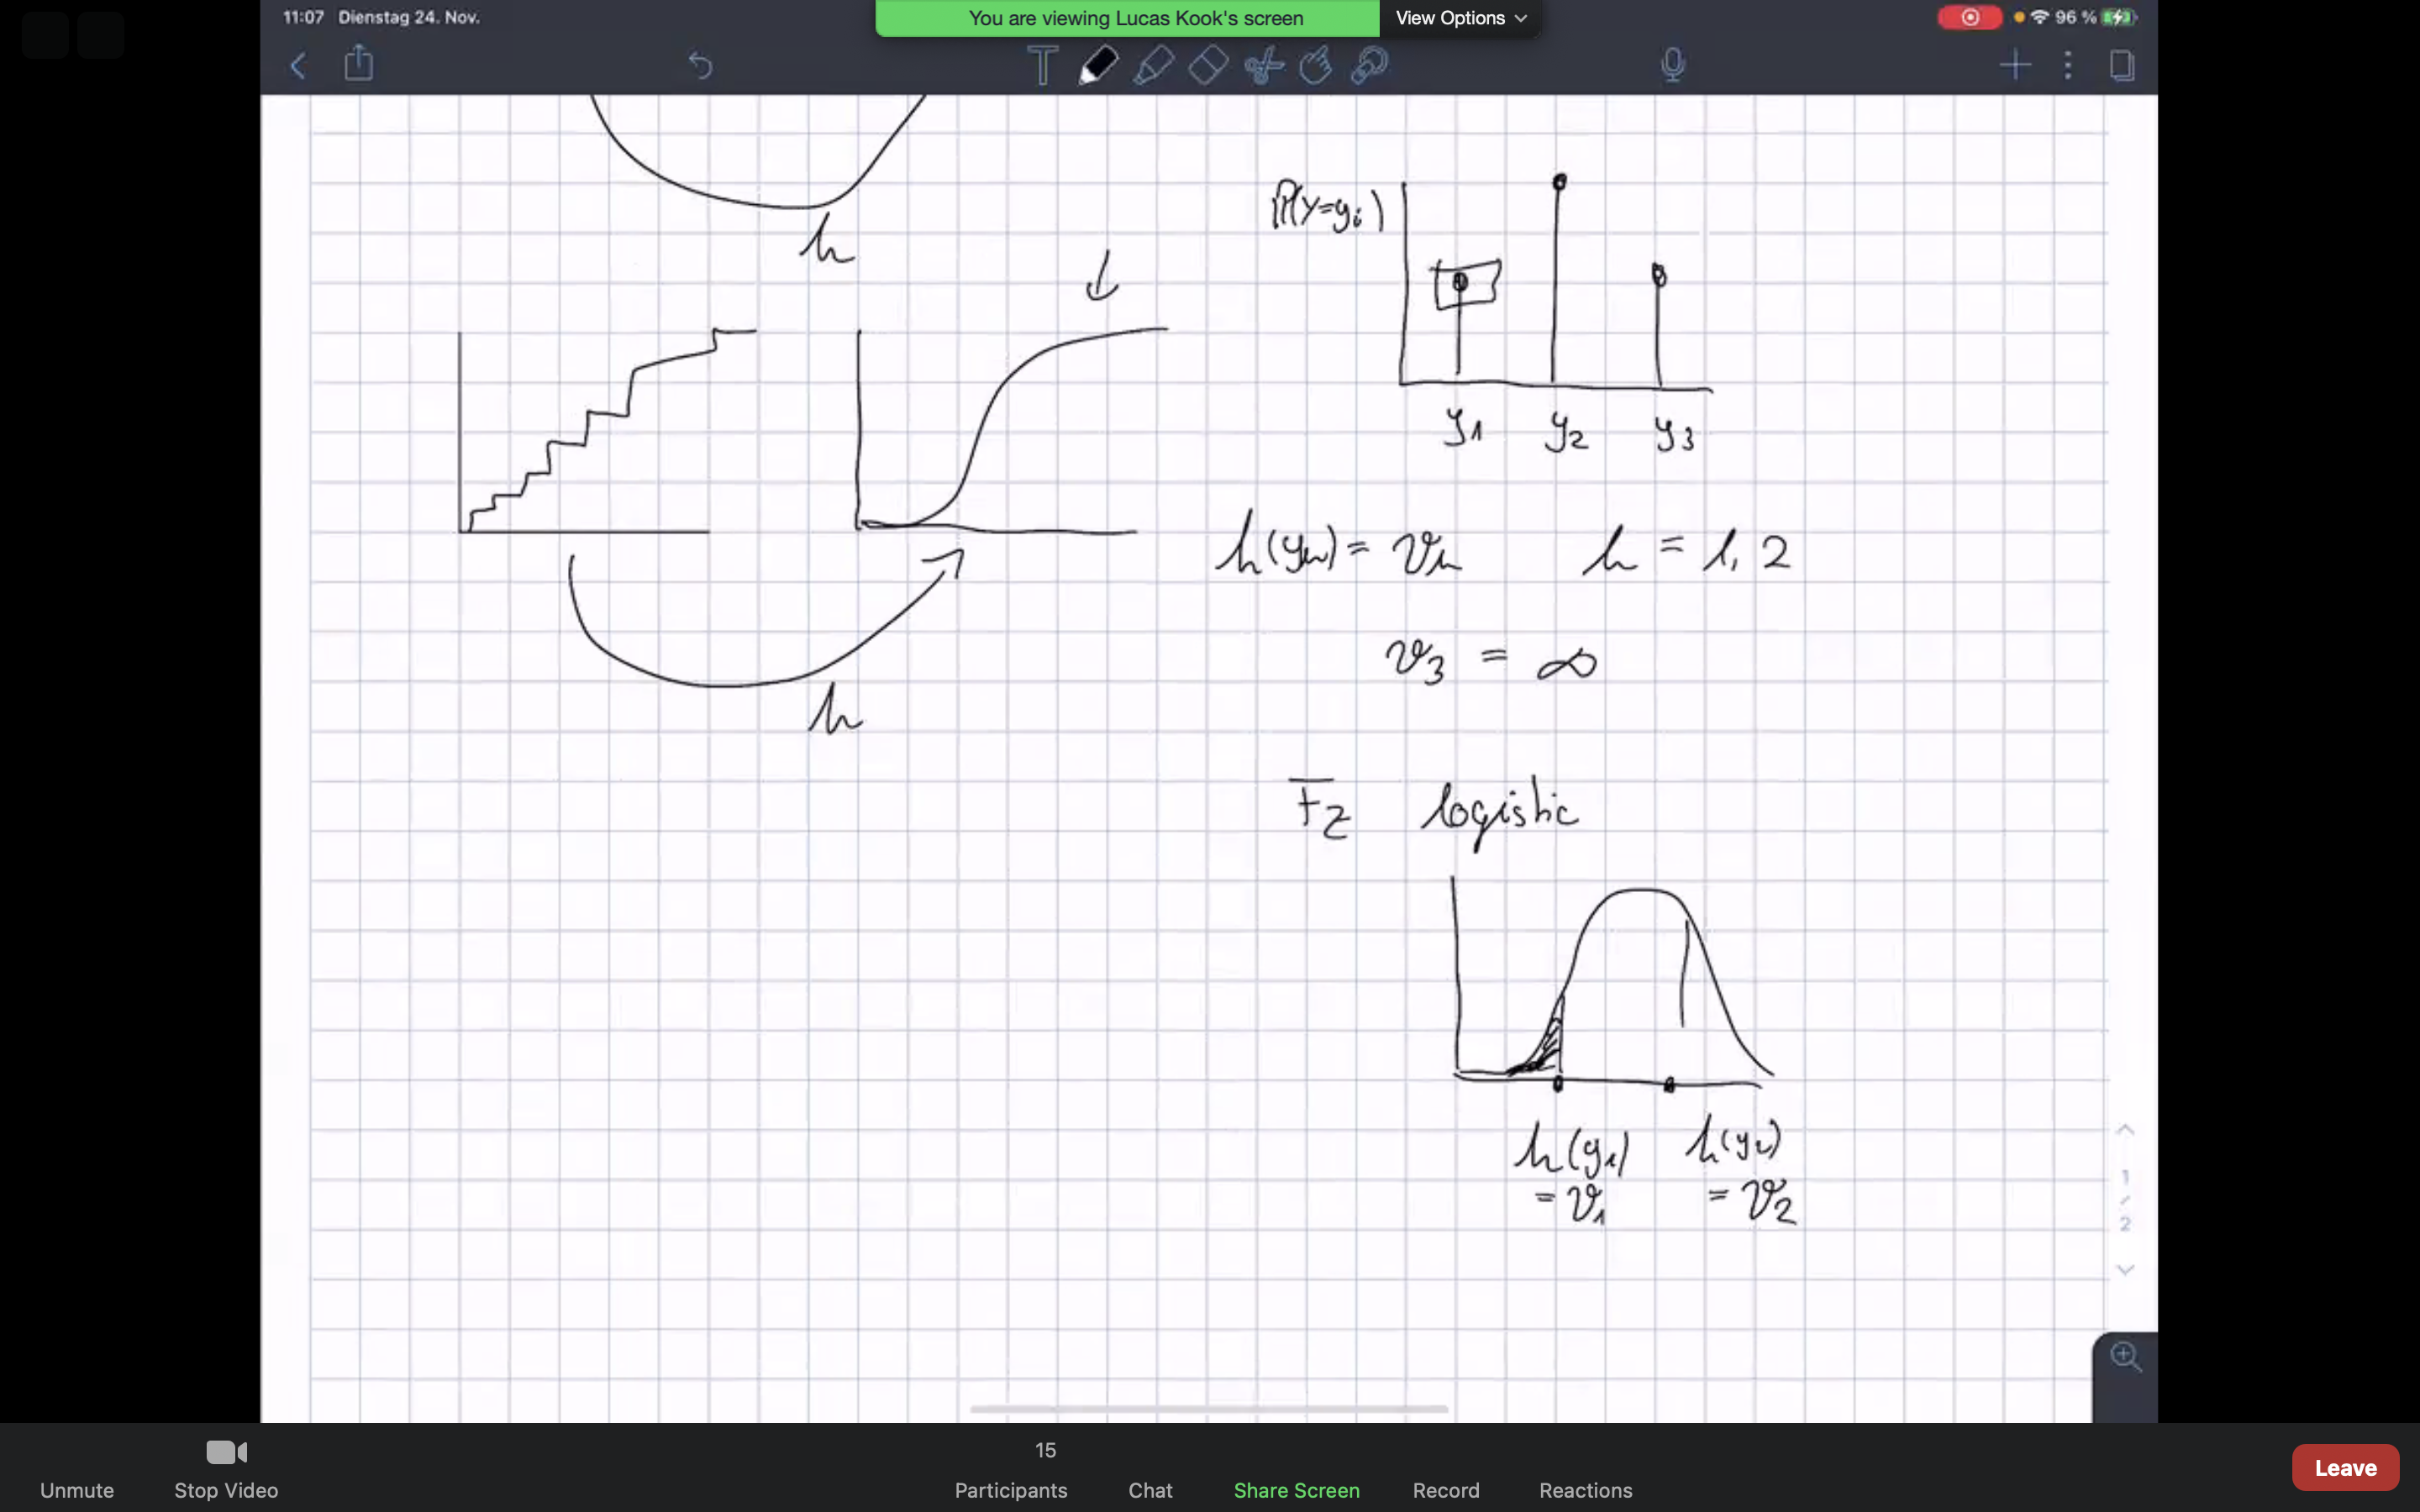 11:07 Dienstag 24. Nov.
You are viewing Lucas Kook's screen
View Options
96 %
T
h
P(Y=yi)
y1 y2 y3
h(yk) = ϑk k = 1, 2
ϑ3 = ∞
h
FZ logistic
h(y1) h(y2)
= ϑ1 = ϑ2
1
/
2
15
Unmute
Stop Video
Participants
Chat
Share Screen
Record
Reactions
Leave